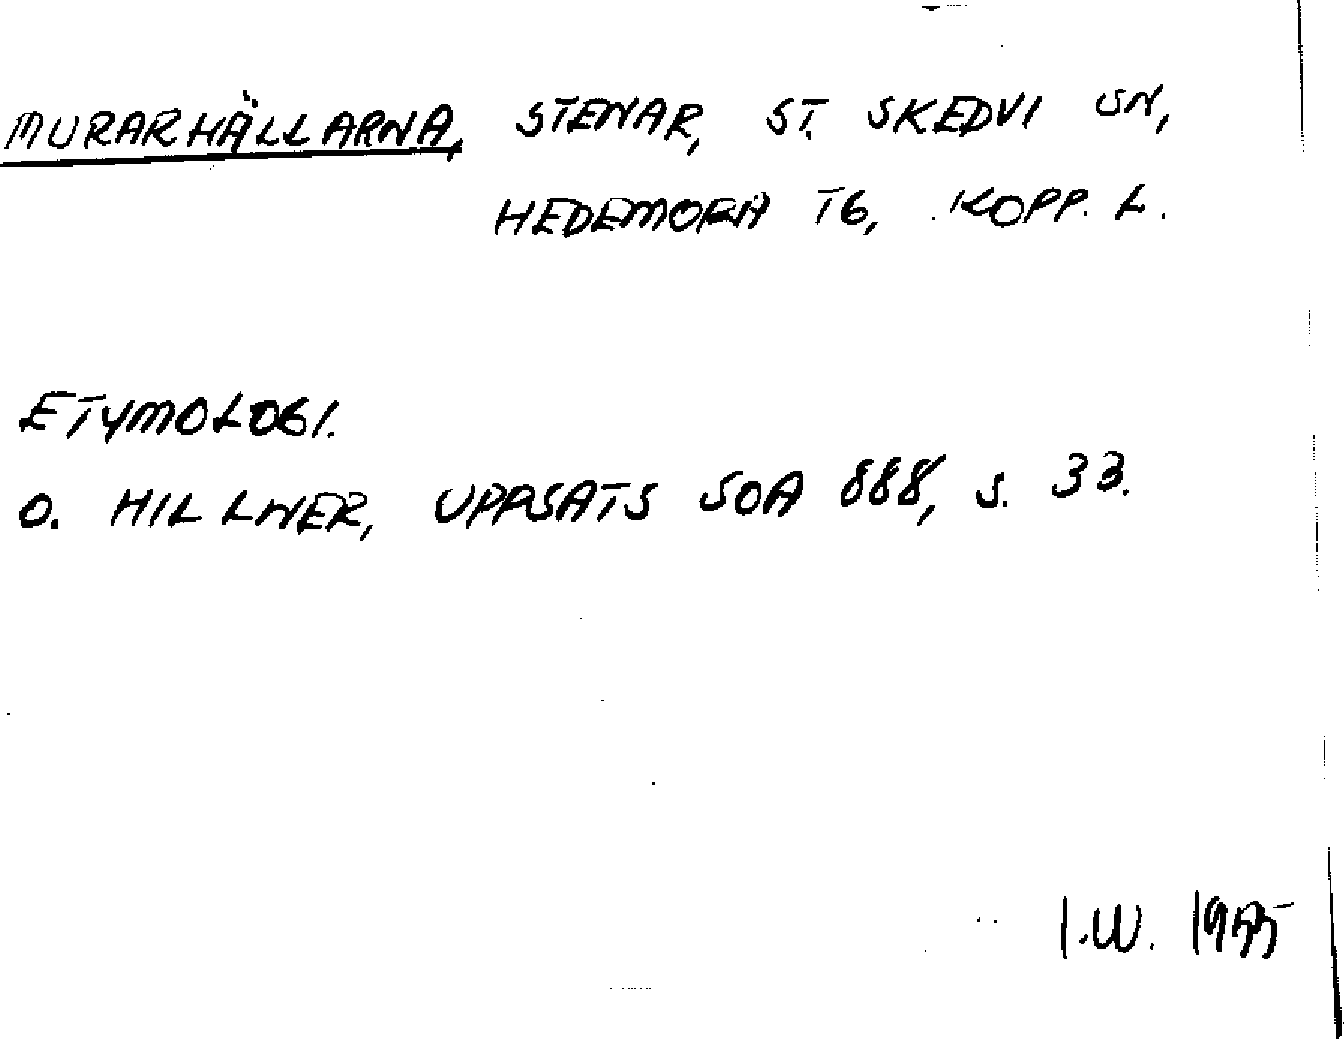 MURARHÄLLARNA, STENAR, ST. SKEDVI SN,
HEDEMORA TG, KOPP. L.
ETYMOLOGI.
O. HILLNER, UPPSATS SOA 888, S. 33.
I.W. 1955